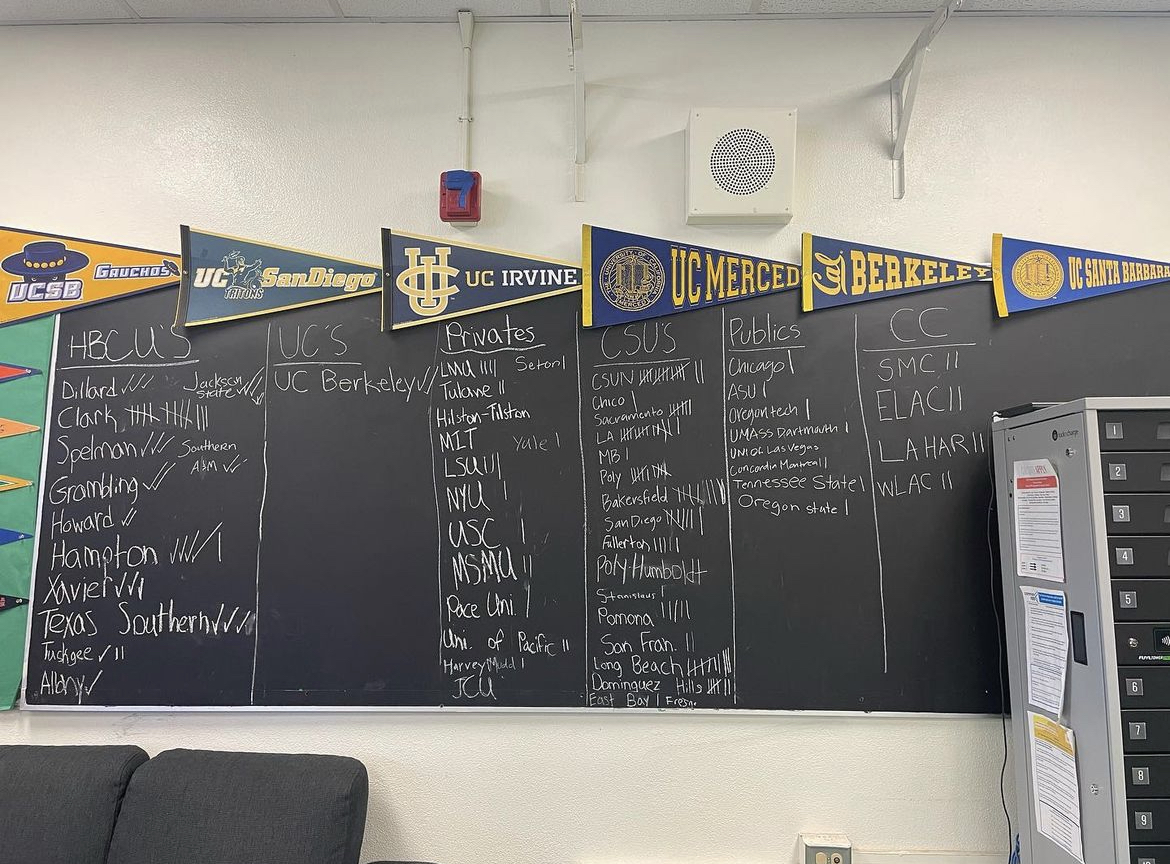 7
GAUCHOS
UCSB
UC SanDiego
TRITONS
UC IRVINE
UC MERCED
Cal BERKELEY
UC SANTA BARBARA
HBCU'S
Dillard
Jackson State
Clark
Spelman
Southern A&M
Grambling
Howard
Hampton
Xavier
Texas Southern
Tuskgee
Albany
UC'S
UC Berkeley
Privates
LMU
Seton
Tulane
Hilston-Tilston
MIT
Yale
LSU
NYU
USC
MSMU
Pace Uni.
Uni. of Pacific
Harvey Mudd
JCU
CSU'S
CSUN
Chico
Sacramento
LA
MB
Poly
Bakersfield
San Diego
Fullerton
Poly Humboldt
Stanislaus
Pomona
San Fran.
Long Beach
Dominguez Hills
East Bay Fresno
Publics
Chicago
ASU
Oregon tech
UMASS Dartmouth
UNI of Las Vegas
Concordia Montreal
Tennessee State
Oregon state
CC
SMC
ELAC
LA HAR
WLAC
1
2
3
4
5
6
7
8
9